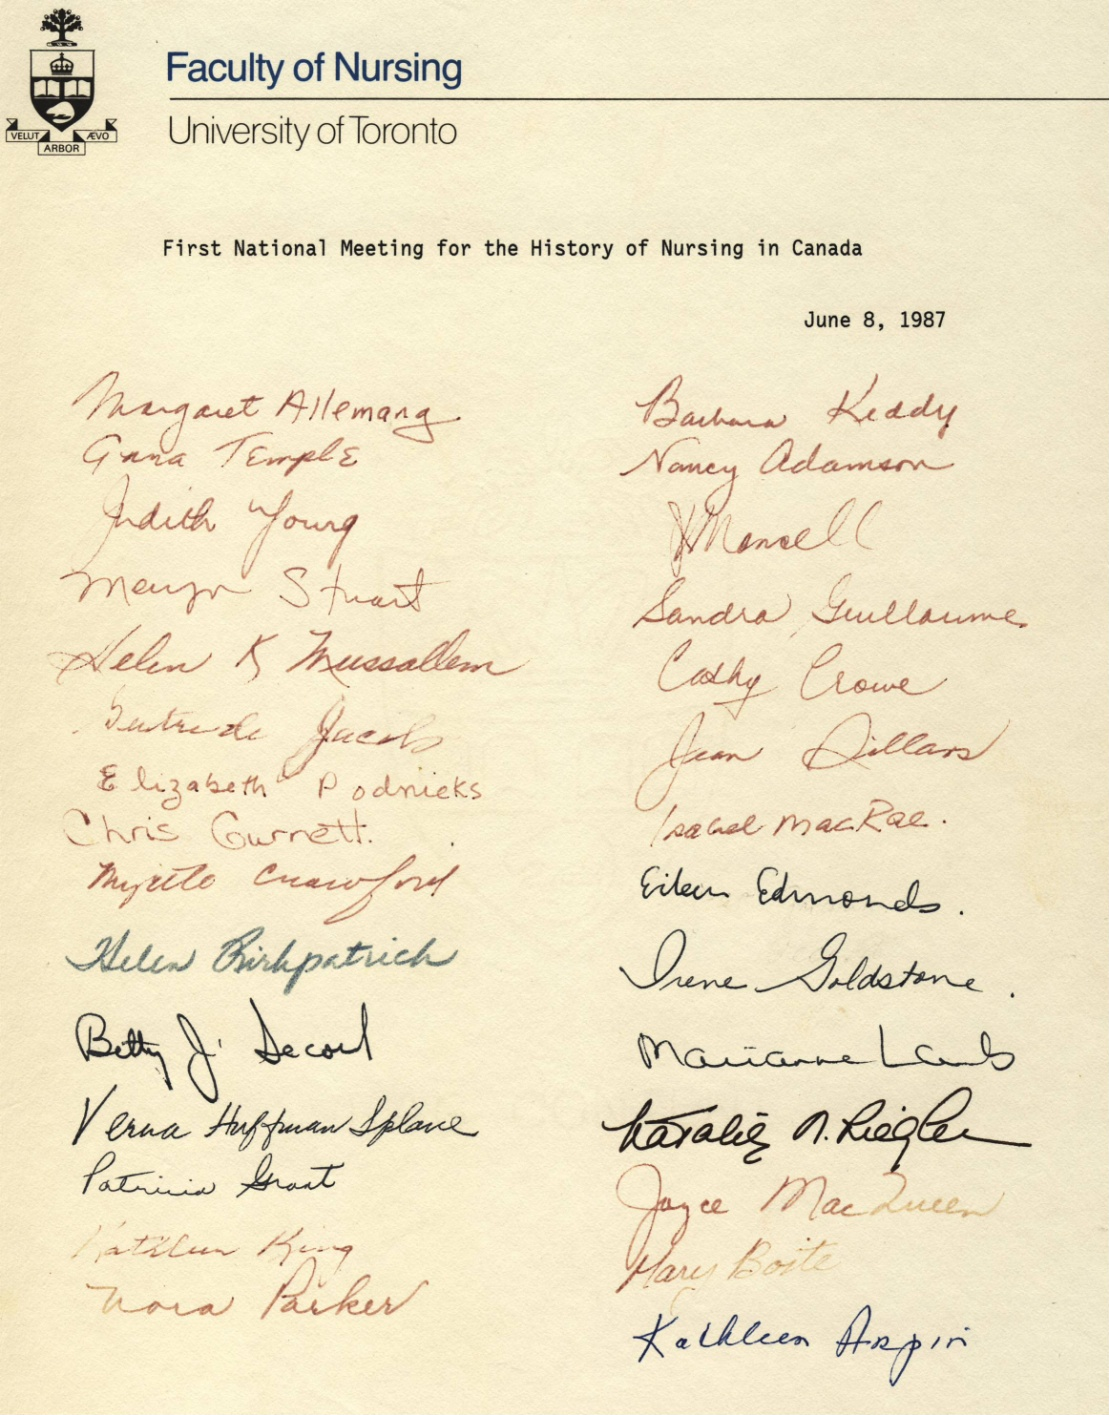 VELUT ARBOR ÆVO
Faculty of Nursing
University of Toronto
First National Meeting for the History of Nursing in Canada
June 8, 1987
Margaret Allemang
Anna Temple
Judith Young
Meryn Stuart
Helen K Mussallem
Gertrude Jacobs
Elizabeth Podnieks
Chris Gurnett.
Myrtle Crawford
Helen Kirkpatrick
Betty J. Secord
Verna Huffman Splane
Patricia Grant
Kathleen King
Nora Parker
Barbara Keddy
Nancy Adamson
Mansell
Sandra Guillaume
Cathy Crowe
Jean Dillars
Isabel MacRae.
Eileen Edmonds.
Irene Goldstone.
Marianne Lamb
Natalie N. Riegler
Joyce MacQueen
Mary Boite
Kathleen Arpin